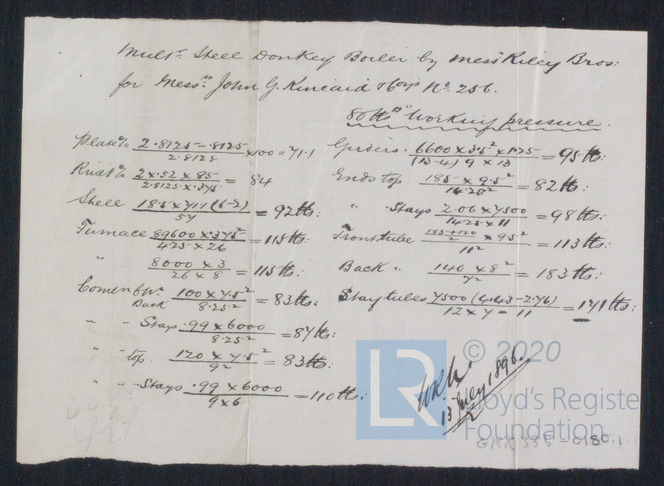 Mult. Steel Donkey Boiler by Messrs Riley Bros:
for Messrs John G. Kincaid & Coys No. 256.
80 lbs Working pressure.
Plate % 2.8125 - .8125 / 2.8125 × 100 = 71.1
Rivet % 2 × .52 × 85 / 2.8125 × .375 = 84
Shell 185 × 711 (6-2) / 54 = 92 lbs:
Furnace 89600 × .375² / 4.25 × 26 = 115 lbs:
" 8000 × 3 / 26 × 8 = 115 lbs:
Back 100 × 7.5² / 8.25² = 83 lbs:
" " Stays .99 × 6000 / 8.25² = 87 lbs:
" " top 120 × 7.5² / 9² = 83 lbs:
" " Stays .99 × 6000 / 9 × 6 = 110 lbs:
Girders 6600 × 3.5² × 1.75 / (13-4) 9 × 13 = 95 lbs:
Ends top 185 × 9.5² / 14.25² = 82 lbs:
" Stays 2.06 × 7500 / 14.25 × 11 = 98 lbs:
Front tube 185+120 / 2 × 9.5² / 11² = 113 lbs:
Back " 140 × 8² / 7² = 183 lbs:
Stay tubes 7500 (4.43 - 2.76) / 12 × 7 - 11 = 171 lbs:
13 July 1896.
LR © 2020
Lloyd's Register
Foundation
0180.1